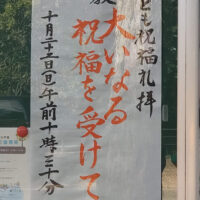 ども祝福礼拝
大いなる
祝福を受けて
十月二十二日(日)午前十時三十分